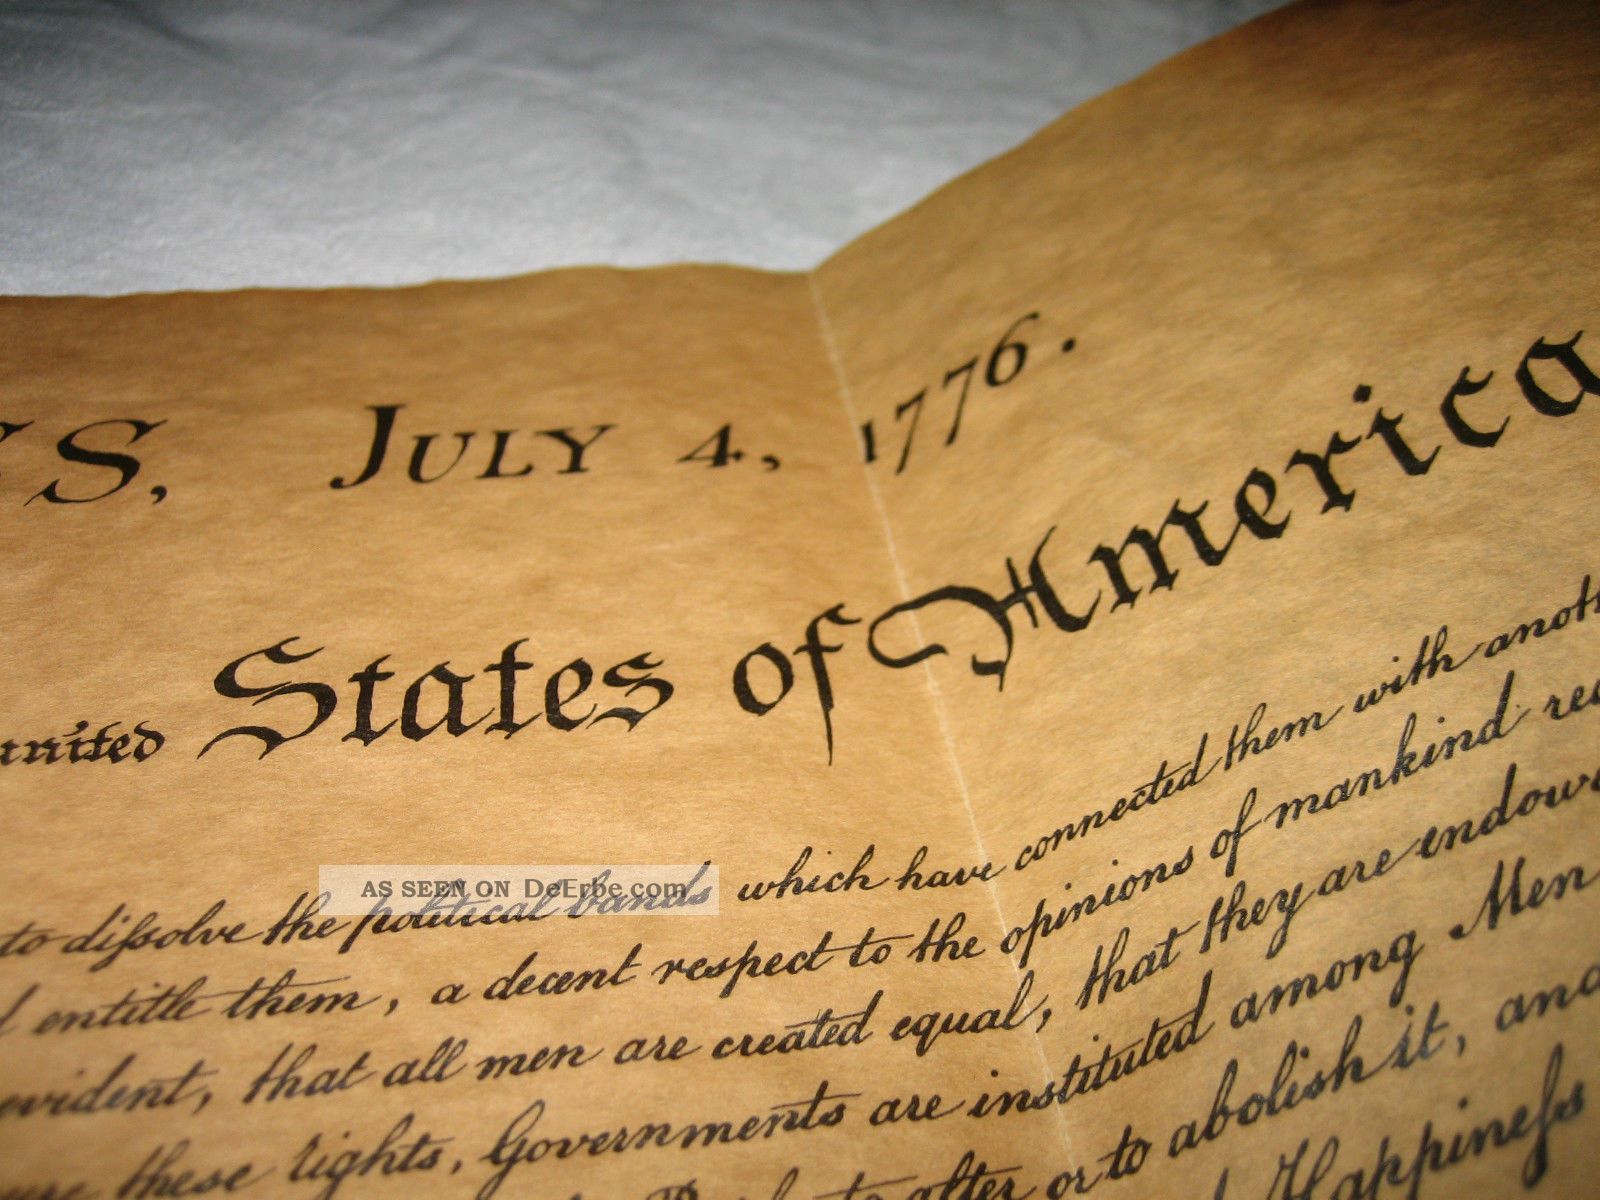 S, JULY 4, 1776.
united States of America
to dissolve the political bands which have connected them with
entitle them, a decent respect to the opinions of mankind
evident, that all men are created equal, that they are
these rights, Governments are instituted among Men
to alter or to abolish it, and
Happiness
AS SEEN ON DeErbe.com